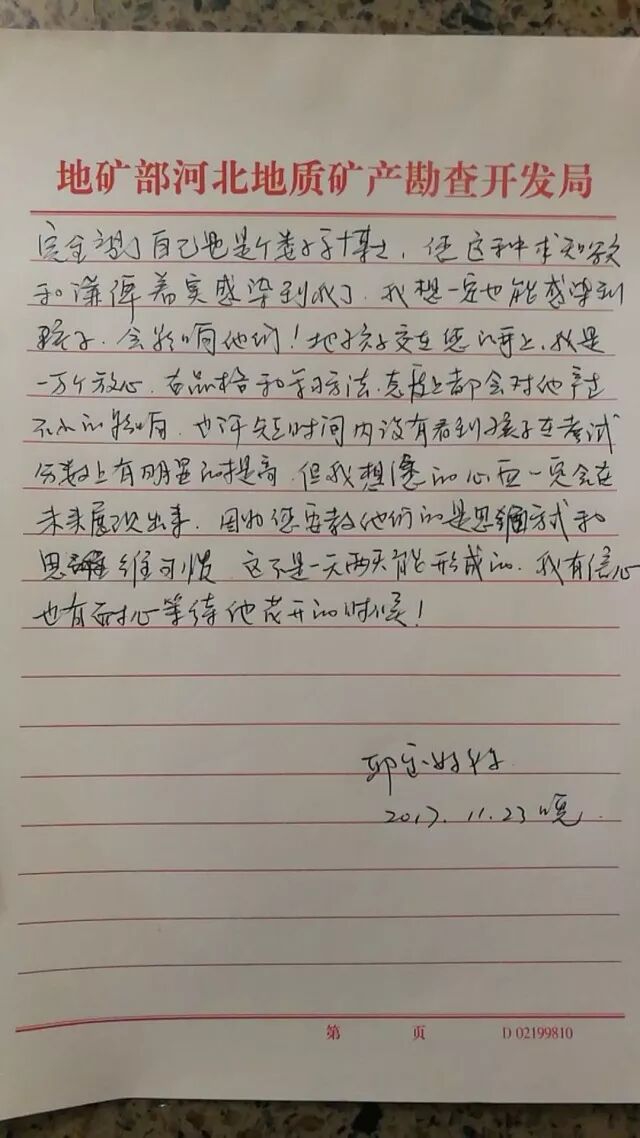 地矿部河北地质矿产勘查开发局
完全忘了自己也是个教子博士，但这种求知欲
和谦卑着实感染到我了，我想一定也能感染到
孩子，会影响他们！把孩子交在您的手上，我是
一万个放心，在品格和学习方法、态度上都会对他产生
不小的影响，也许短时间内没有看到孩子在考试
分数上有明显的提高，但我想您的心血一定会在
未来展现出来，因为您要教他们的是思维方式和
思维习惯，这不是一天两天能形成的，我有信心
也有耐心等待他花开的时候！
2017.11.23晚
第 页 D 02199810